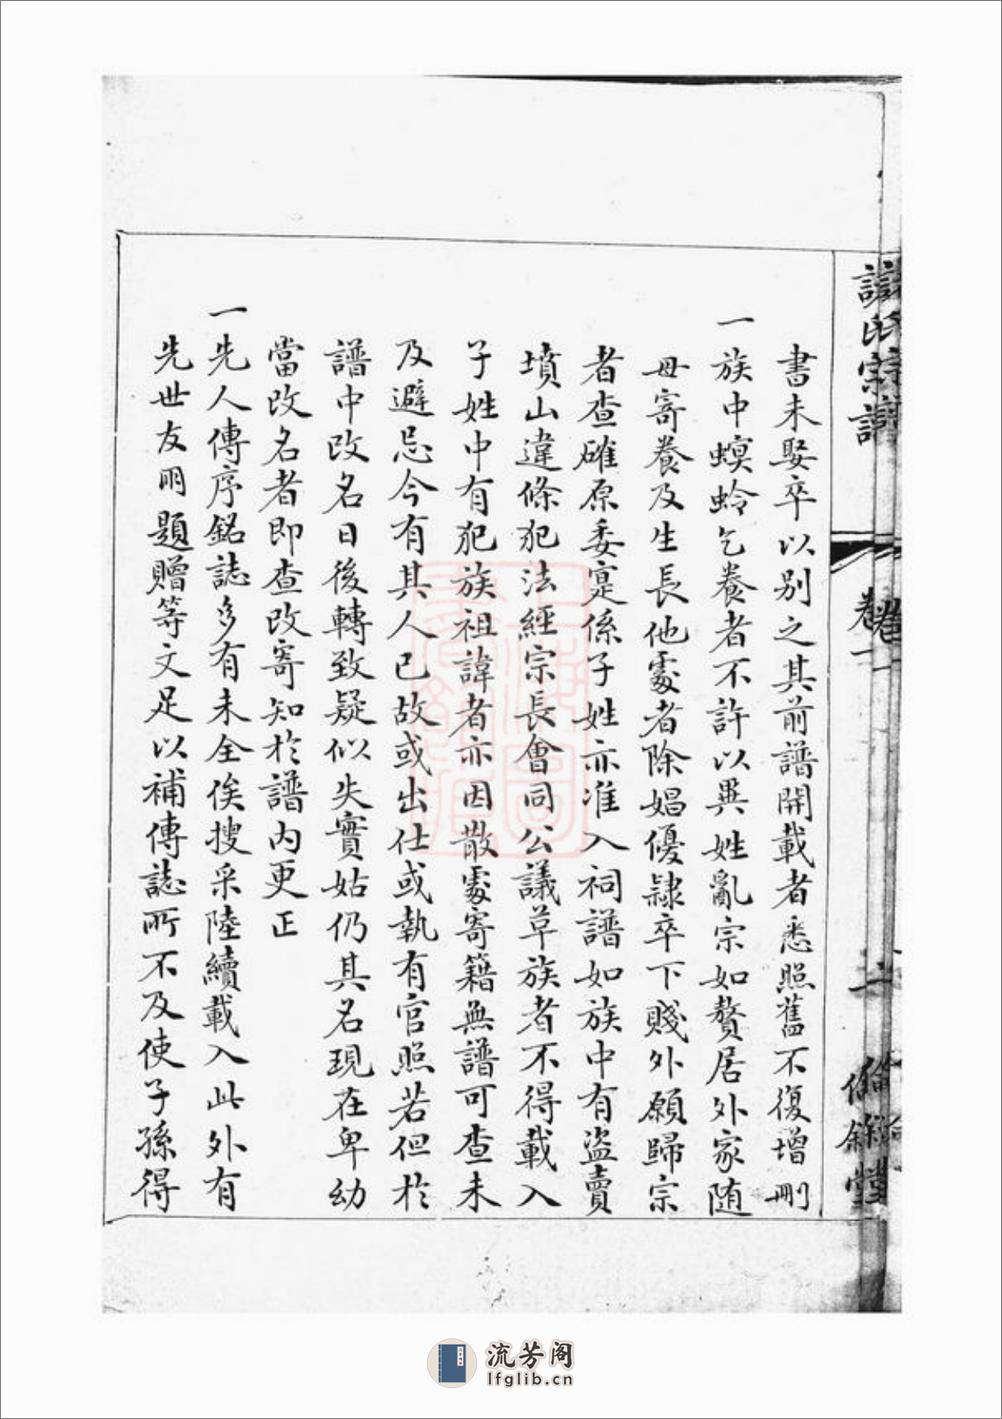 書未娶卒以别之其前譜開載者悉照舊不復增刪
一族中螟蛉乞養者不許以異姓亂宗如贅居外家随
母寄養及生長他處者除娼優隸卒下賤外願歸宗
者查確原委寔係子姓亦准入祠譜如族中有盗賣
墳山違條犯法經宗長會同公議草族者不得載入
子姓中有犯族祖諱者亦因散處寄籍無譜可查未
及避忌今有其人已故或出仕或執有官照若但於
譜中改名日後轉致疑似失實姑仍其名現在卑幼
當改名者即查改寄知於譜内更正
一先人傳序銘誌多有未全俟搜采陸續載入此外有
先世友朋題贈等文足以補傳誌所不及使子孫得
氏宗譜
卷一
二
流芳阁
lfglib.cn